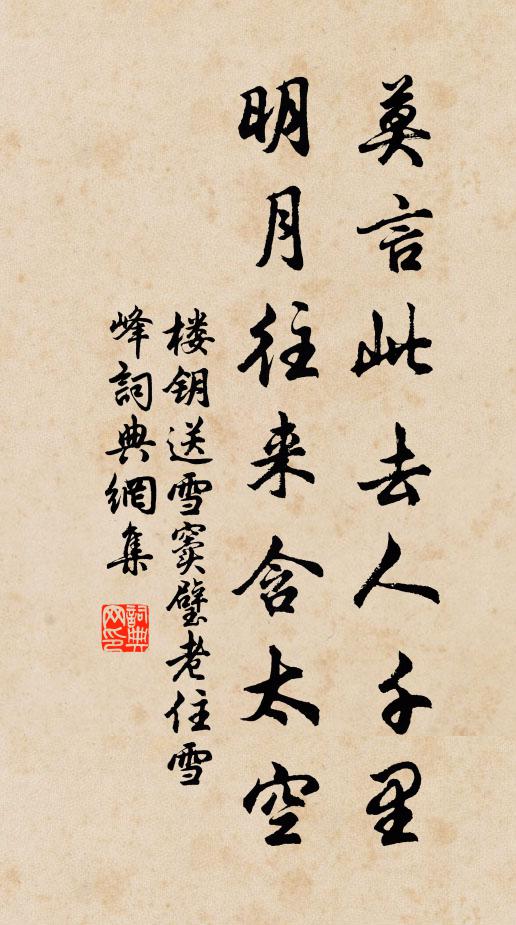 莫言此去人千里
明月往来含太空
楼钥送雪窦璧老住雪
峰詞典網集
詞典網印